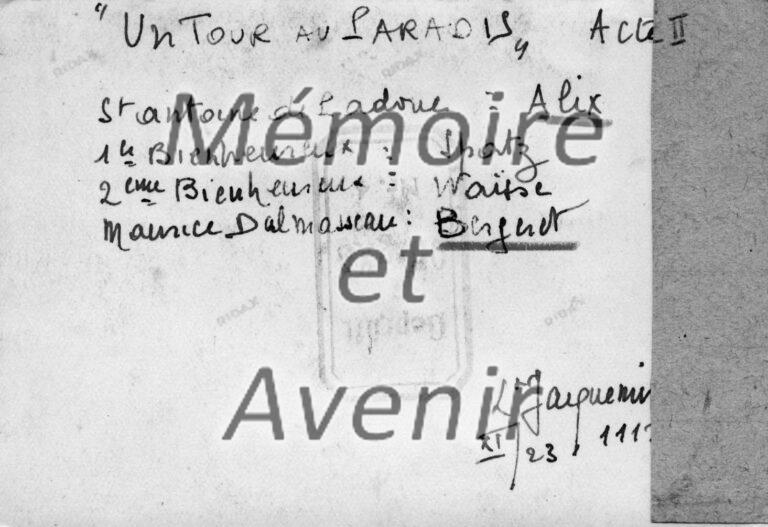 " UN TOUR AU PARADIS " Acte II
St antoine de Padoue = Alix
1er Bienheureux : Spatz
2ème Bienheureux = Waisse
Maurice Dalmasseau : Bergeret
Mémoire
et
Avenir
Jacquemin
XI 23, 111